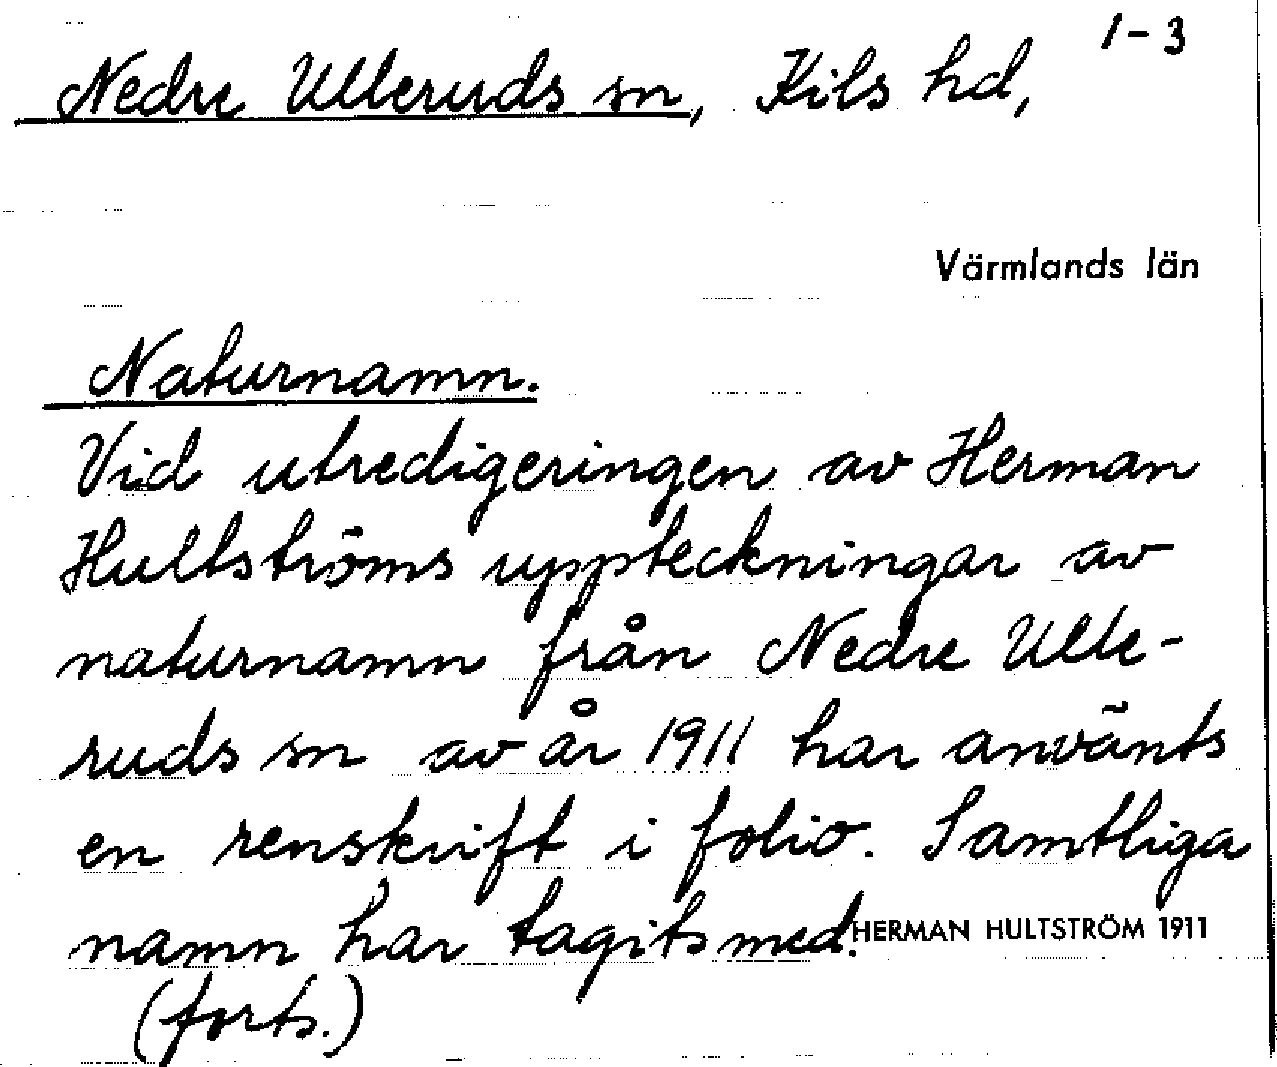 1-3
Nedre Ulleruds sn, Kils hd,
Värmlands län
Naturnamn.
Vid utredigeringen av Herman
Hultströms uppteckningar av
naturnamn från Nedre Ulle-
ruds sn av år 1911 har använts
en renskrift i folio. Samtliga
namn har tagits med.
HERMAN HULTSTRÖM 1911
(forts.)